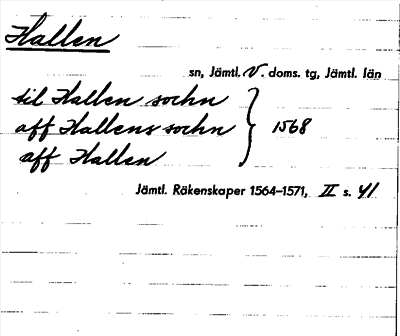 Hallen
sn, Jämtl. V. doms. tg, Jämtl. län
til Hallen sochn
aff Hallens sochn } 1568
aff Hallen
Jämtl. Räkenskaper 1564–1571, II s. 41